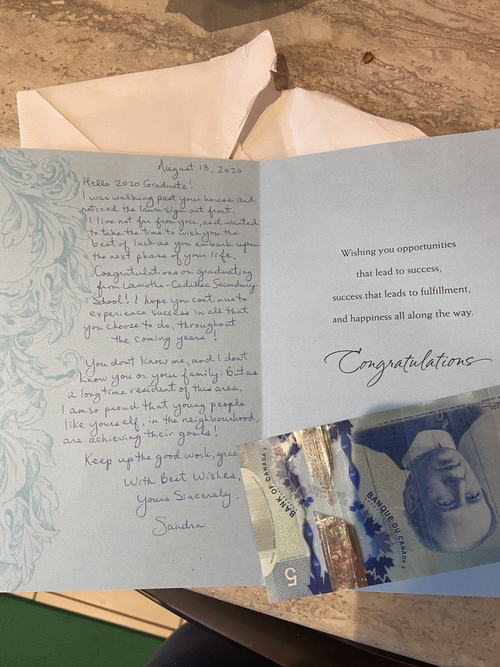 August 18, 2020
Hello 2020 Graduate!
I was walking past your house and
noticed the lawn sign out front.
I live not far from you, and wanted
to take the time to wish you the
best of luck as you embark upon
the next phase of your life.
Congratulations on graduating
from Lamothe-Cadillac Secondary
School! I hope you continue to
experience success in all that
you choose to do, throughout
the coming years!
You don't know me, and I don't
know you or your family. But as
a long time resident of this area,
I am so proud that young people
like yourself, in the neighbourhood,
are achieving their goals!
Keep up the good work, grad
With Best Wishes,
Yours Sincerely,
Sandra
Wishing you opportunities
that lead to success,
success that leads to fulfillment,
and happiness all along the way.
Congratulations
BANK OF CANADA
BANQUE DU CANADA
5